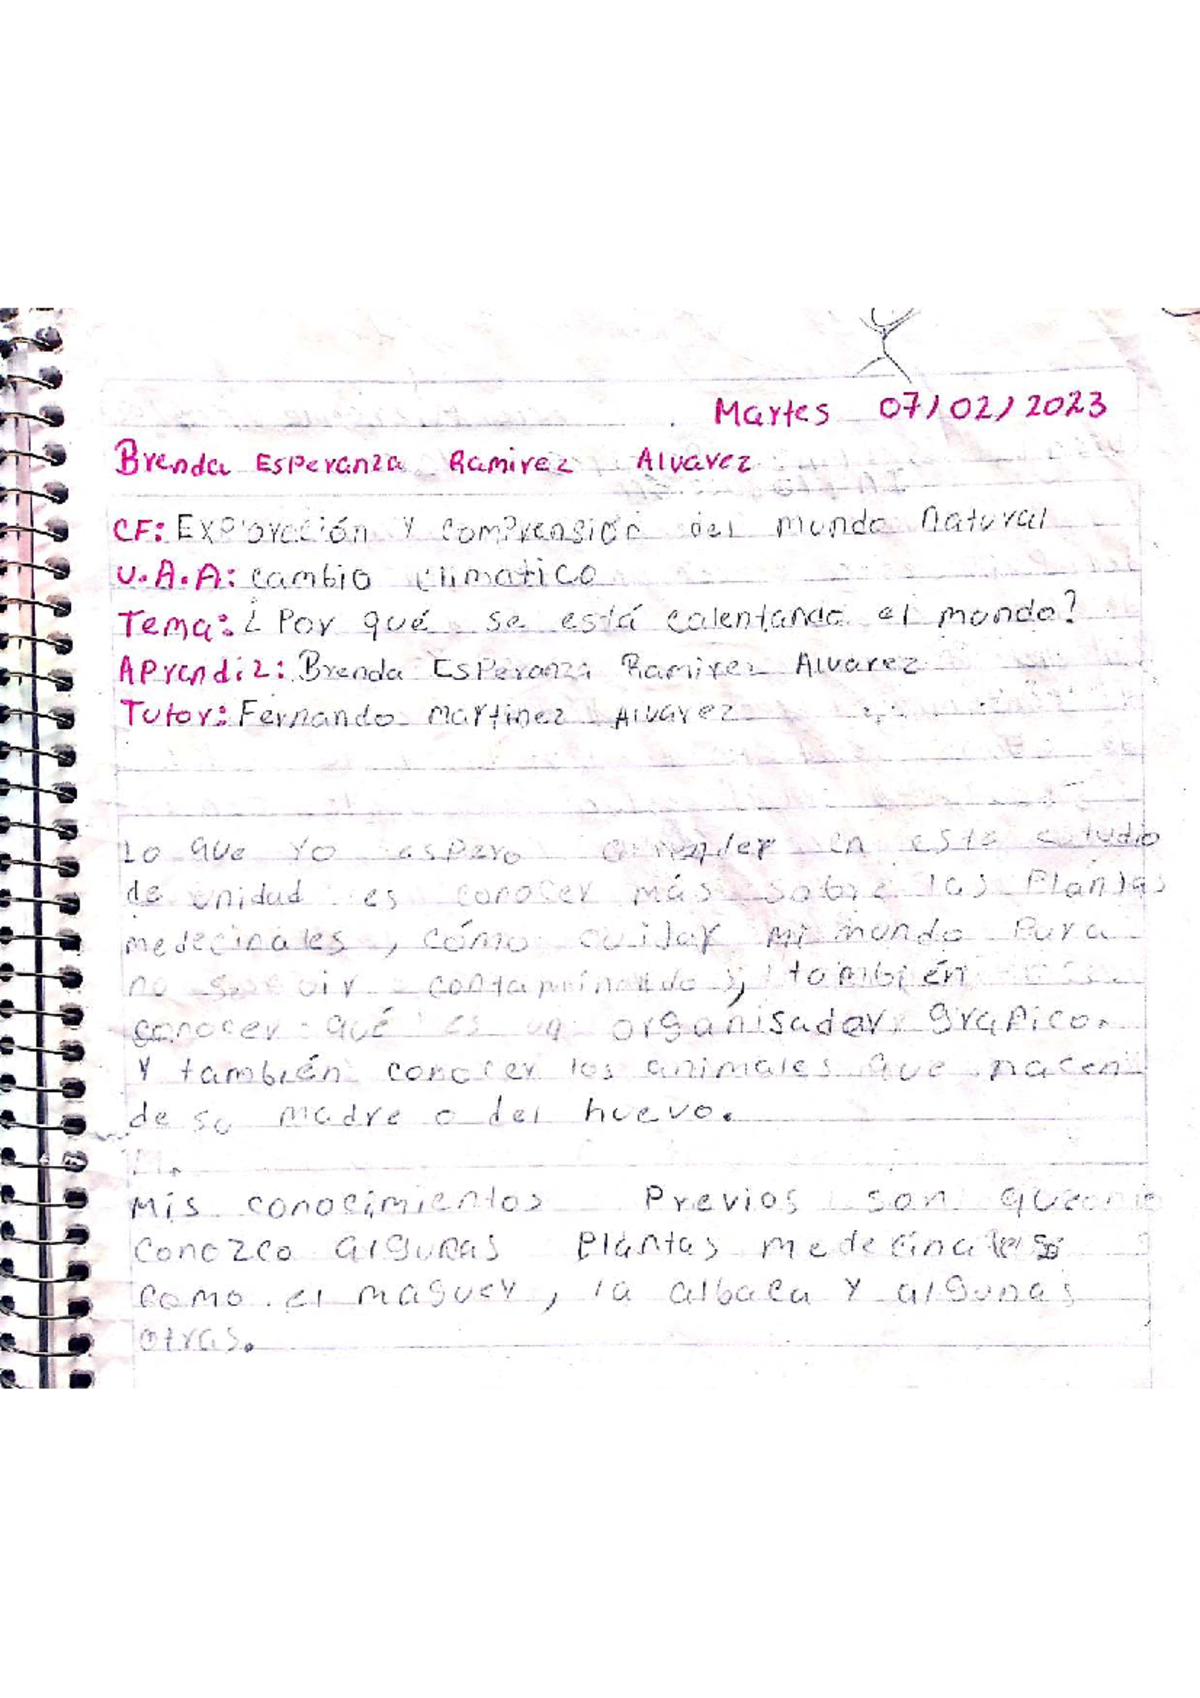 Martes 07/02/2023
Brenda Esperanza Ramirez Alvarez
CF: Exploración y comprensión del mundo natural
U.A.A: cambio climatico
Tema: ¿Por qué se está calentando el mundo?
Aprendiz: Brenda Esperanza Ramirez Alvarez
Tutor: Fernando Martinez Alvarez
Lo que yo espero aprender en este estudio
de unidad es conocer más sobre las plantas
medecinales, cómo cuidar mi mundo para
no seguir contaminando, también
conocer qué es un organisador grafico.
Y también conocer los animales que nacen
de su madre o del huevo.
Mis conocimientos previos son que
conozco algunas plantas medecinales
como el maguey, la albaca y algunas
otras.